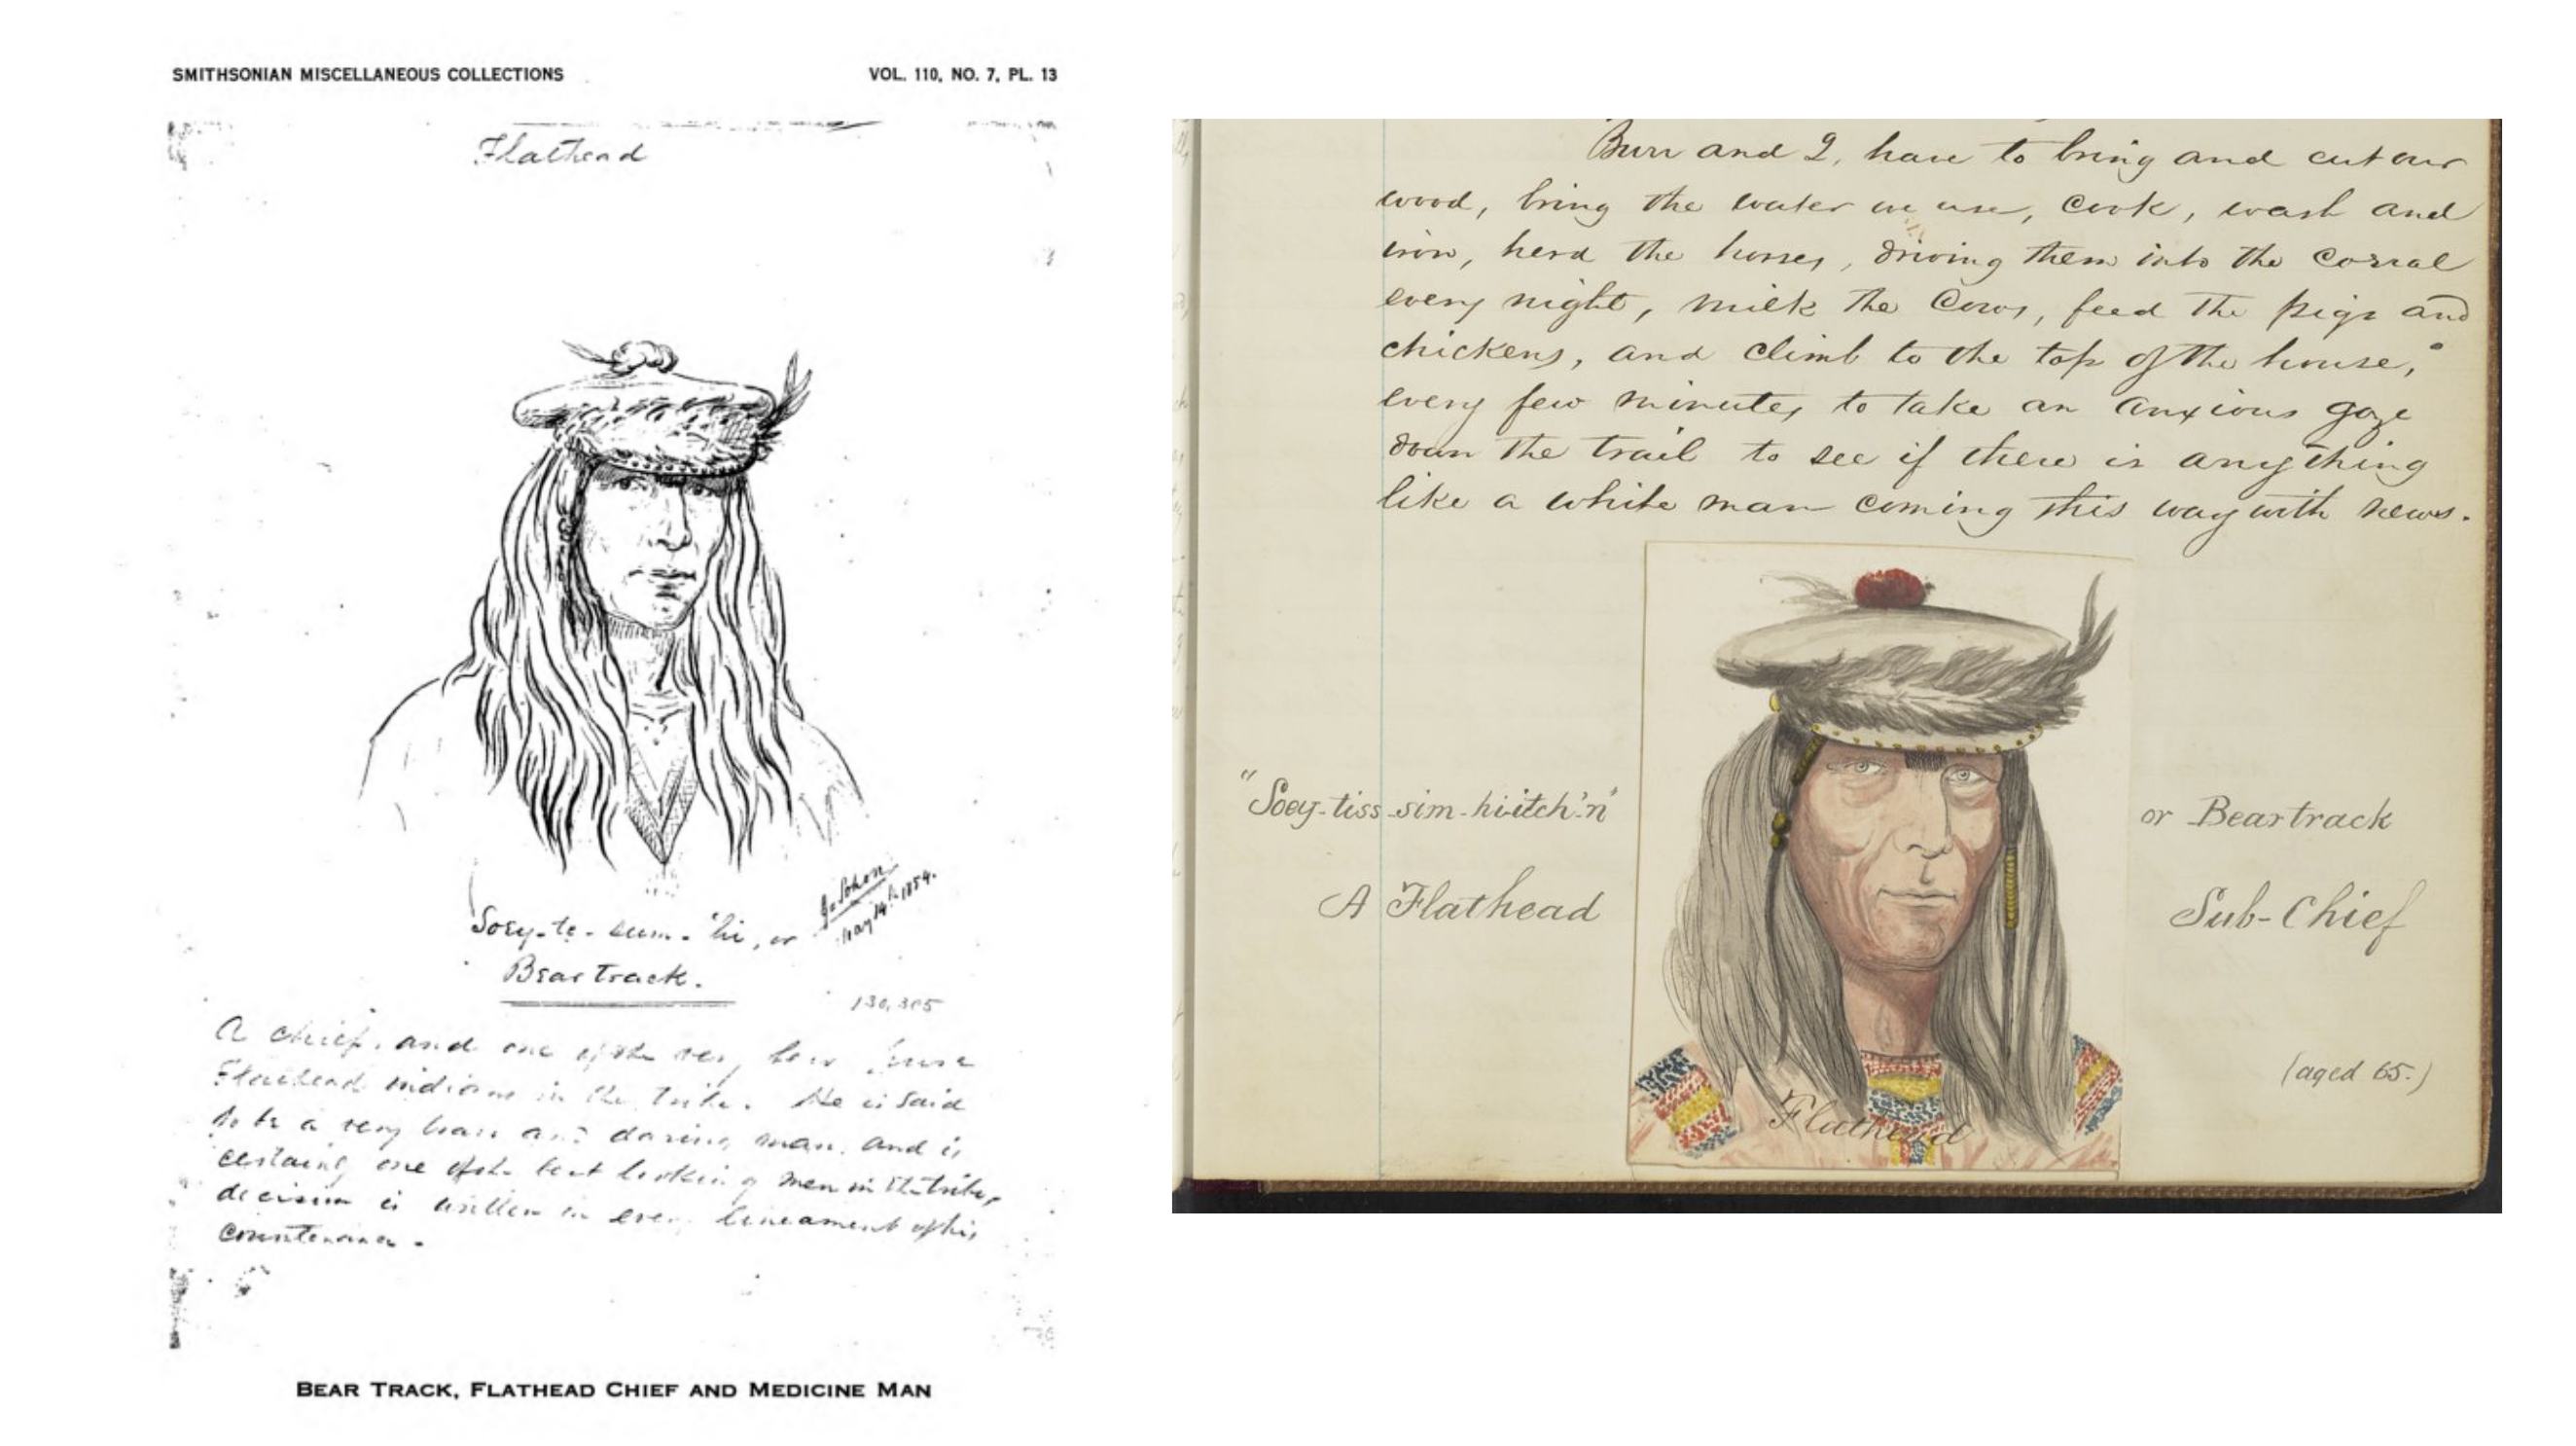 SMITHSONIAN MISCELLANEOUS COLLECTIONS
VOL. 110, NO. 7, PL. 13
Flathead
Soey-te-sum-'hi, or
Bear Track.
G. Sohon
May 14th 1854.
130,305
A chief, and one of the very few pure
Flathead indians in the tribe. He is said
to be a very brave and daring man, and is
certainly one of the best looking men in the tribe,
decision is written in every lineament of his
countenance.
BEAR TRACK, FLATHEAD CHIEF AND MEDICINE MAN
Burr and I, have to bring and cut our
wood, bring the water we use, cook, wash and
iron, herd the horses, driving them into the corral
every night, milk the Cows, feed the pigs and
chickens, and climb to the top of the house,
every few minutes to take an anxious gaze
down the trail to see if there is anything
like a white man coming this way with news.
"Soey-tiss-sim-hiitch'n"
or Beartrack
A Flathead
Sub-Chief
(aged 65.)
Flathead